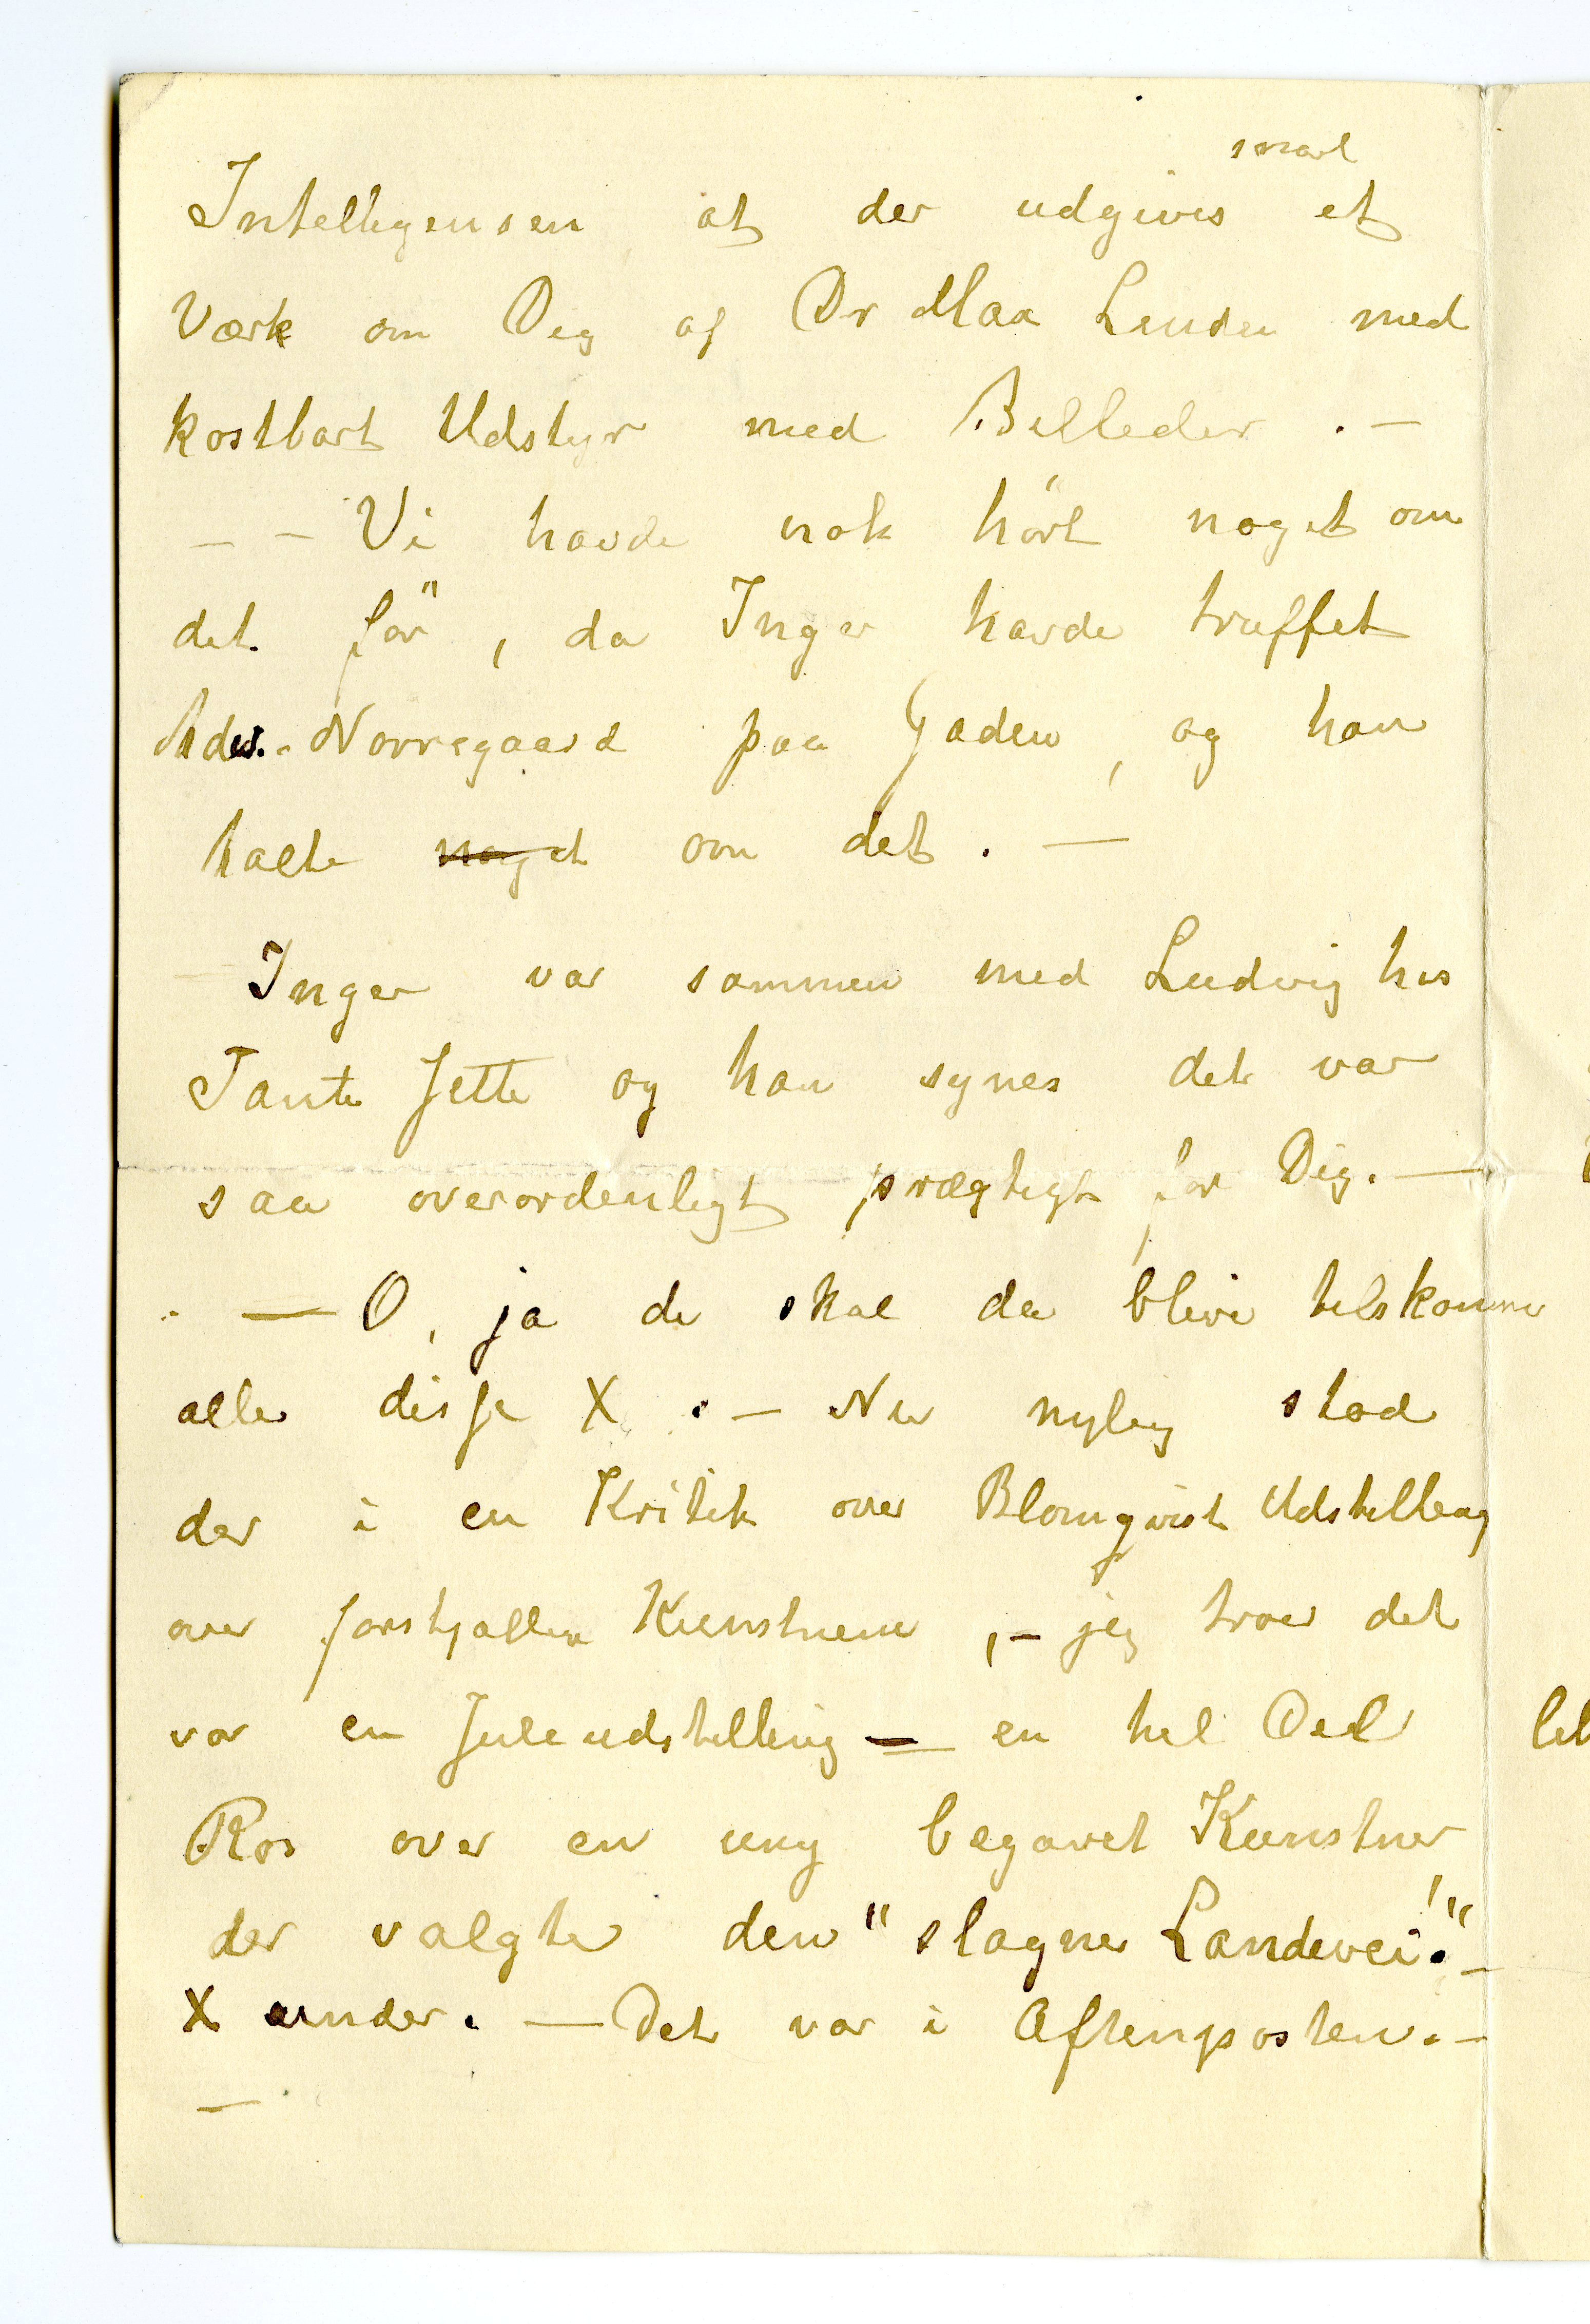 snart
Intelligensen at der udgives et
Værk om Dig af Dr Max Linden med
kostbart Udstyr med Billeder . —
— – Vi havde nok hört noget om
det för , da Inger havde truffet
Adv. Norregaard paa Gaden , og han
talte noget om det . —
Inger var sammen med Ludvig hos
Tante Jette og han synes det var
saa overordenligt prægtigt for Dig. —
— O, ja de skal da blive tilskamme
alle disse X . — Nu nylig stod
der i en Kritik over Blomqvist Udstilling
over forskjallige Kunstnere , – jeg troer det
var en Juleudstilling — en hel Deel
Ros over en ung begavet Kunstner
der valgte den " slagne Landevei!"–
X under. — Det var i Aftenposten. –
—